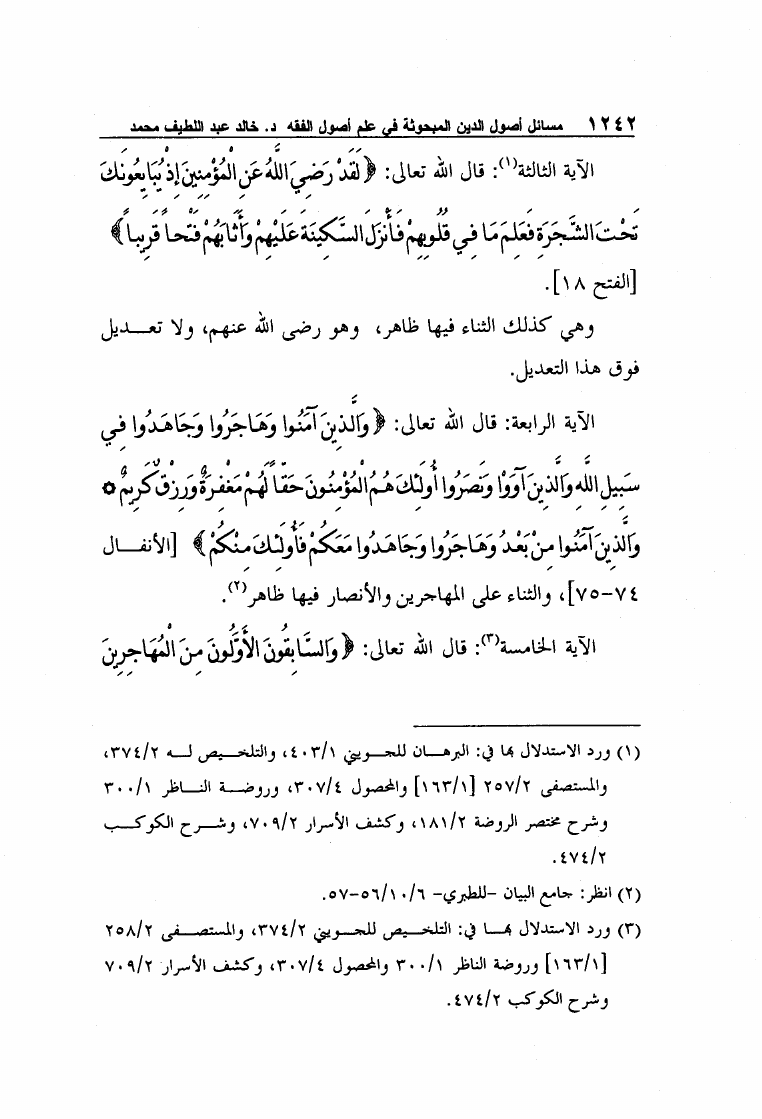 ١٢٤٢ مسائل أصول الدين المبحوثة في علم أصول الفقه د. خالد عبد اللطيف محمد
الآية الثالثة(١): قال الله تعالى: ﴿لَقَدْ رَضِيَ اللَّهُ عَنِ الْمُؤْمِنِينَ إِذْ يُبَايِعُونَكَ
تَحْتَ الشَّجَرَةِ فَعَلِمَ مَا فِي قُلُوبِهِمْ فَأَنْزَلَ السَّكِينَةَ عَلَيْهِمْ وَأَثَابَهُمْ فَتْحاً قَرِيباً﴾
[الفتح ١٨].
وهي كذلك الثناء فيها ظاهر، وهو رضى الله عنهم، ولا تعـــديل
فوق هذا التعديل.
الآية الرابعة: قال الله تعالى: ﴿وَالَّذِينَ آمَنُوا وَهَاجَرُوا وَجَاهَدُوا فِي
سَبِيلِ اللَّهِ وَالَّذِينَ آوَوْا وَنَصَرُوا أُولَئِكَ هُمُ الْمُؤْمِنُونَ حَقّاً لَهُمْ مَغْفِرَةٌ وَرِزْقٌ كَرِيمٌ ۞
وَالَّذِينَ آمَنُوا مِنْ بَعْدُ وَهَاجَرُوا وَجَاهَدُوا مَعَكُمْ فَأُولَئِكَ مِنْكُمْ﴾ [الأنفــال
٧٤-٧٥]، والثناء على المهاجرين والأنصار فيها ظاهر(٢).
الآية الخامسة(٣): قال الله تعالى: ﴿وَالسَّابِقُونَ الأَوَّلُونَ مِنَ الْمُهَاجِرِينَ
(١) ورد الاستدلال بها في: البرهـــان للجـــويني ٤٠٣/١، والتلخـــيص لـــه ٣٧٤/٢،
والمستصفى ٢٥٧/٢ [١٦٣/١] والمحصول ٣٠٧/٤، وروضـــة النـــاظر ٣٠٠/١
وشرح مختصر الروضة ١٨١/٢، وكشف الأسرار ٧٠٩/٢، وشـــرح الكوكـــب
٤٧٤/٢.
(٢) انظر: جامع البيان -للطبري- ٥٦/١٠/٦-٥٧.
(٣) ورد الاستدلال بهـــا في: التلخـــيص للجـــويني ٣٧٤/٢، والمستصـــفى ٢٥٨/٢
[١٦٣/١] وروضة الناظر ٣٠٠/١ والمحصول ٣٠٧/٤، وكشف الأسرار ٧٠٩/٢
وشرح الكوكب ٤٧٤/٢.